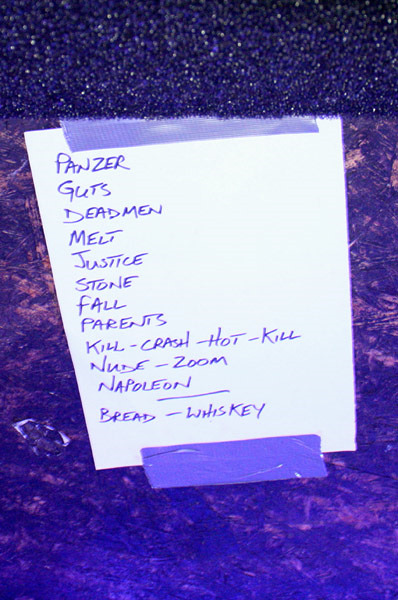 PANZER
GUTS
DEADMEN
MELT
JUSTICE
STONE
FALL
PARENTS
KILL-CRASH-HOT-KILL
NUDE-ZOOM
NAPOLEON
BREAD-WHISKEY